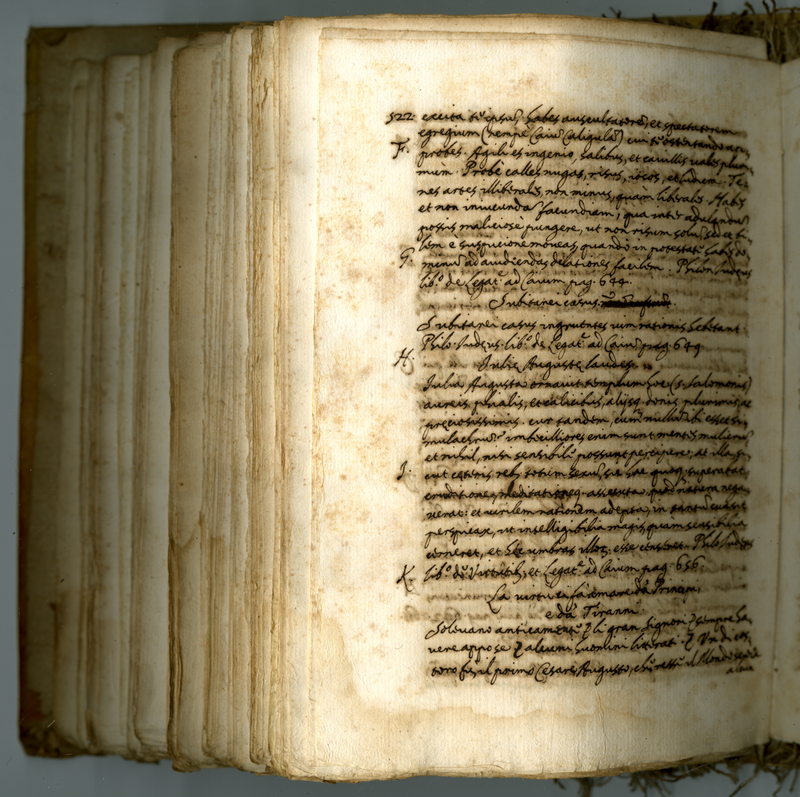 522. excita te ipsũ, habes auscultatorẽ, et spectatorem
egregium (nempè Caiũ Caligulã)
F. probes. Agili es ingenio, salibus, et cavillis vales pluri-
mùm. Probè calles nugas, risus, iocos, et Te-
nes artes illiberales, non minus, quàm liberales. Habes
et non iniucundã facundiam; qua inter adulandũ
possis maliciosè pungere, ut non risum solũ, sed et bi-
lem è suspicione moveas, quando in potestatẽ habes do-
G. minũ ad audiendas delationes facilem. Philon Iudeus
lib.º de Legat.e ad Caium pag. 644.
Subitanei casus.
Subitanei casus ingruentes vim rationis hebetant.
Philo Iudeus lib.º de Legat.e ad Caiũ pag. 649.
H. Iuliæ Augustæ laudes.
Iulia Augusta ornavit templum hoc (s. Salomonis)
aureis phialis, et calicibus, alijsq. donis plurimis, ac
preciosissimis. cur tandem, cum nullũ ibi esset si-
mulachrũ? imbecilliores enim sunt mentes mulierũ
et nihil, nisi sensibile possunt percipere, at illa si-
I. cut ceteris reb. totum sexũ, sic hac quoq. superabat,
eruditione, meditationeq. assecuta, quod natura nega-
verat: et virilem rationem adepta, in tantũ evasit
perspicax, ut intelligibilia magis, quam sensibilia
cerneret, et hæc umbras illoz. esse censeret. Philo Iudeus
K. lib.º de Virtutib. et Legat.e ad Caium pag. 656.
La virtù si fà amare dà Principi,
e dà Tiranni.
Solevano anticamente li gran Signori sempre ha-
vere appo se alcuni huomini litterati. Un di cos-
toro fù il primo Cesare Augusto, che resse il Mondo